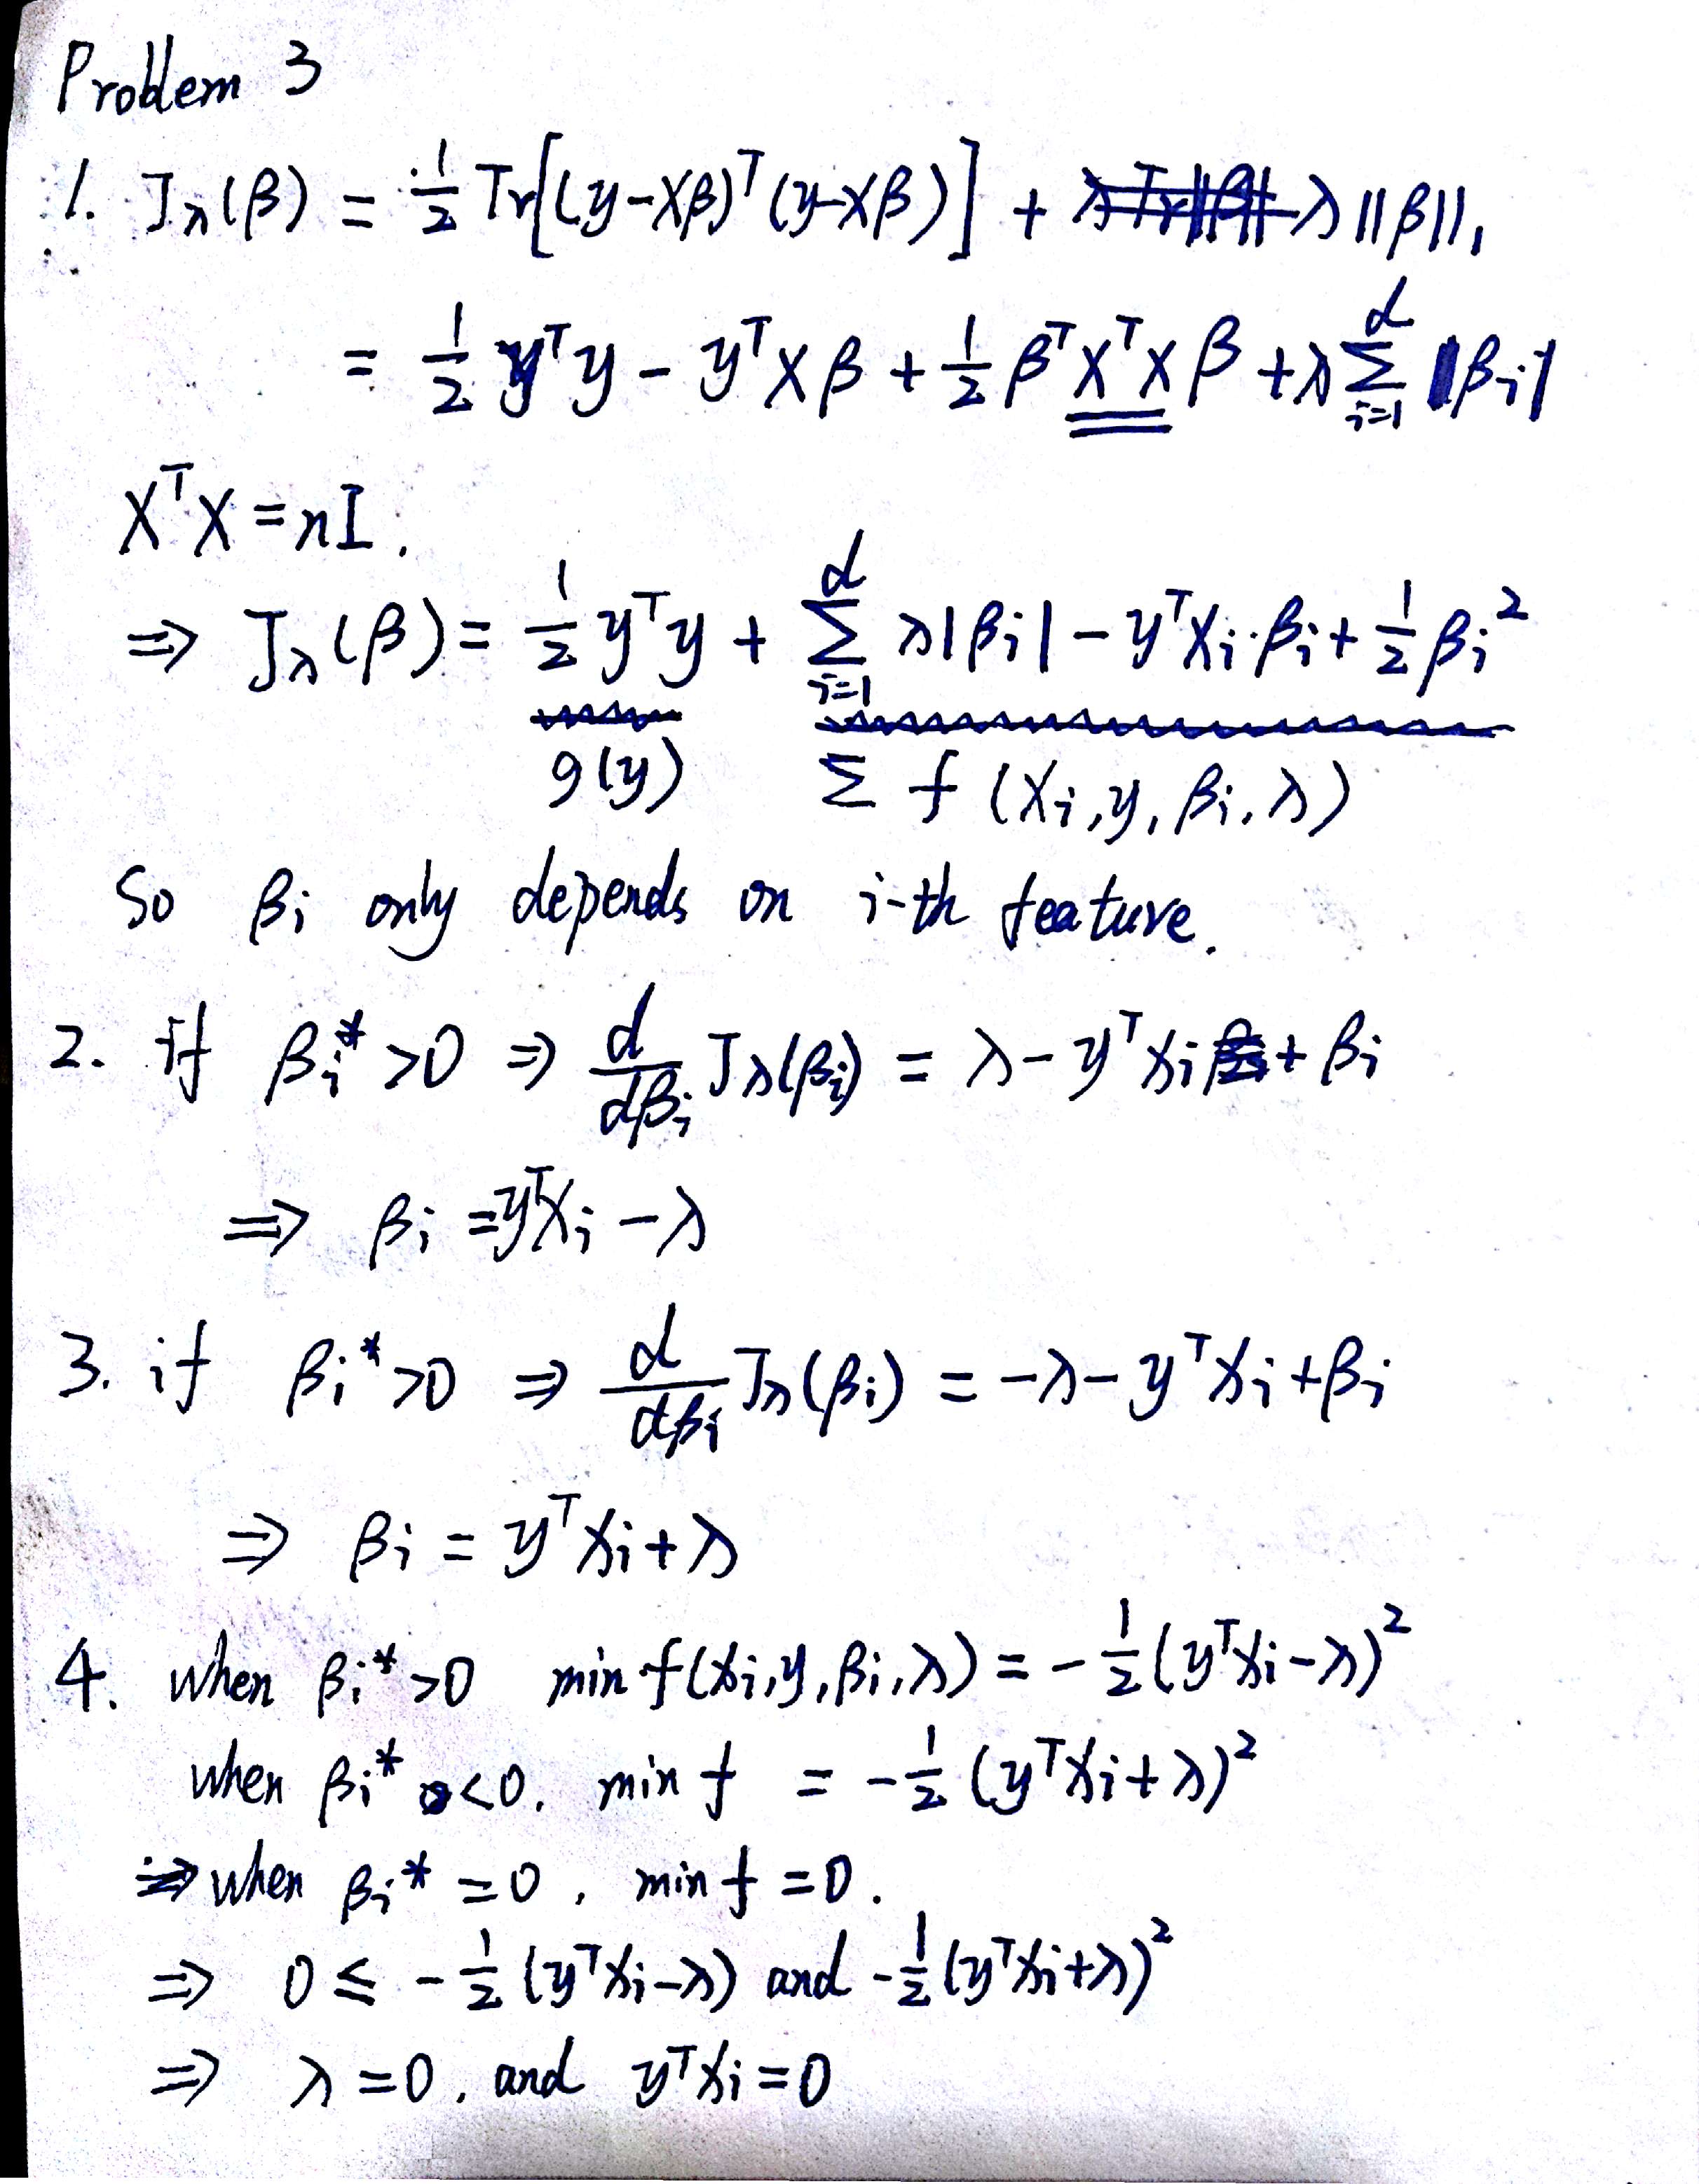 Problem 3
1. J_λ(β) = 1/2 Tr[(y-Xβ)^T (y-Xβ)] + λ||β||_1
= 1/2 y^T y - y^T X β + 1/2 β^T X^T X β + λ Σ_{i=1}^{d} |β_i|
X^T X = nI.
⇒ J_λ(β) = 1/2 y^T y + Σ_{i=1}^{d} λ|β_i| - y^T X_i·β_i + 1/2 β_i^2
g(y) Σ f(X_i, y, β_i, λ)
So β_i only depends on i-th feature.
2. if β_i^* > 0 ⇒ d/dβ_i J_λ(β_i) = λ - y^T X_i + β_i
⇒ β_i = y^T X_i - λ
3. if β_i^* > 0 ⇒ d/dβ_i J_λ(β_i) = -λ - y^T X_i + β_i
⇒ β_i = y^T X_i + λ
4. when β_i^* > 0 min f(X_i, y, β_i, λ) = -1/2 (y^T X_i - λ)^2
when β_i^* < 0. min f = -1/2 (y^T X_i + λ)^2
⇒ when β_i^* = 0, min f = 0.
⇒ 0 ≤ -1/2 (y^T X_i - λ) and -1/2 (y^T X_i + λ)^2
⇒ λ = 0, and y^T X_i = 0